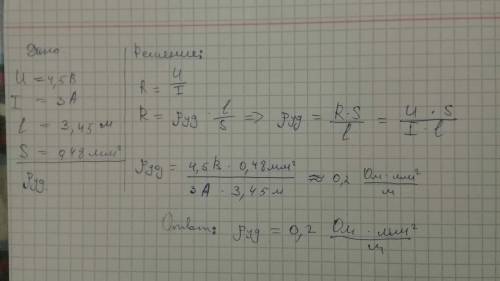 Дано
Решение:
U = 4,5 В
I = 3А
l = 3,45 м
S = 0,48 мм²
ρуд
R = U/I
R = ρуд · l/S => ρуд = R·S/l = U·S/I·l
ρуд = 4,5В · 0,48мм²/3А · 3,45м ≈ 0,2 Ом · мм²/м
Ответ: ρуд = 0,2 Ом · мм²/м